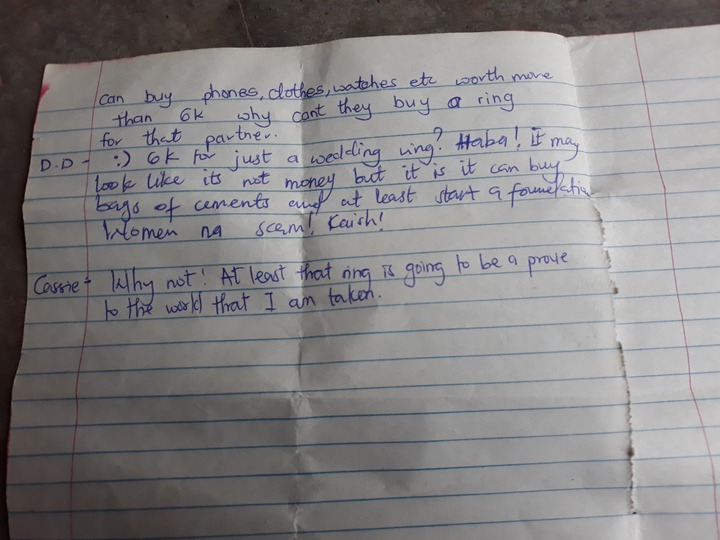 can buy phones, clothes, watches etc worth more
than 6k why cant they buy a ring
for that partner.
D.D - :) 6k for just a wedding ring? Haba! It may
look like its not money but it is it can buy
bags of cements and at least start a foundation
Women na scam! Kaish!
Cassie - Why not! At least that ring is going to be a prove
to the world that I am taken.